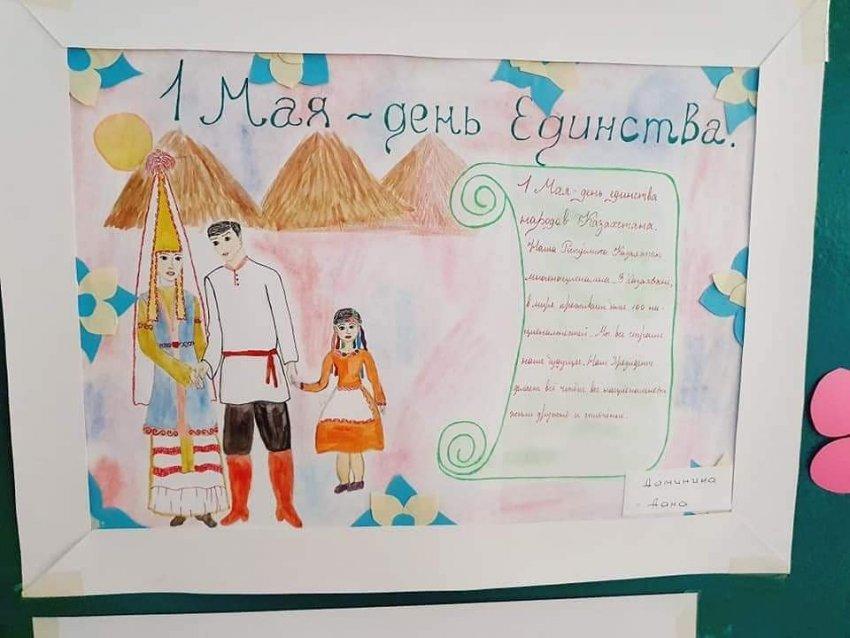 1 Мая ~ день Единства.
1 Мая - день единства
народов Казахстана.
Наша Республика Казахстан
многонациональна. В Казахстане,
в мире проживают более 100 на-
циональностей. Мы все строим
наше будущее. Наш Президент
делает всё чтобы все национальности
жили дружно и сплочённо.
Доминина
Дана